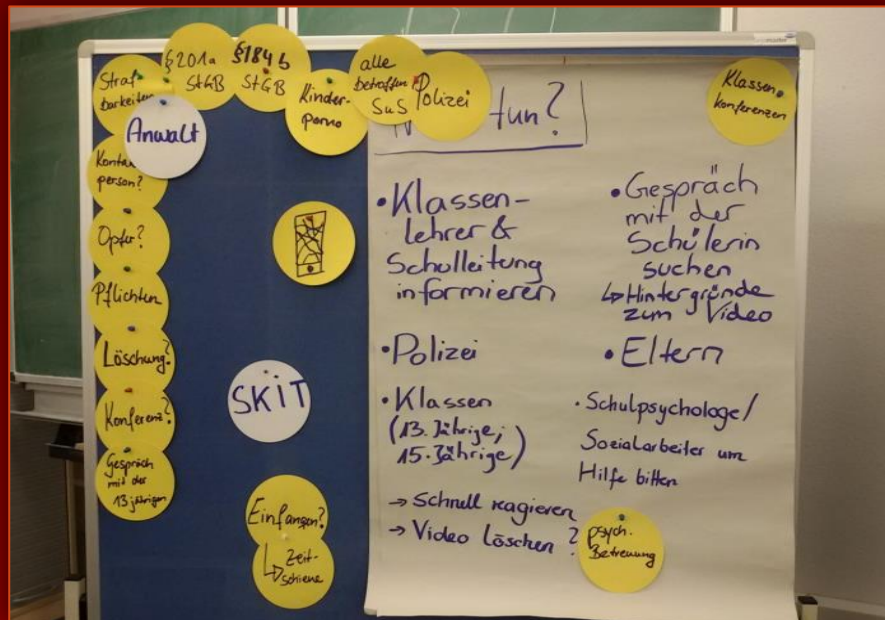 Straf
barkeiten
§201a
StGB
§184b
StGB
Kinder-
porno
alle
betroffen
SuS
Polizei
Klassen
konferenzen
Anwalt
Kontakt
person?
Opfer?
Pflichten
Löschung?
Konferenz?
Gespräch
mit der
13 jährigen
SKIT
Einfangen?
↳ Zeit-
schiene
tun?
• Klassen-
lehrer &
Schulleitung
informieren
• Polizei
• Klassen
(13. Jährige,
15. Jährige)
→ Schnell reagieren
→ Video löschen ?
• Gespräch
mit der
Schülerin
suchen
↳ Hintergründe
zum Video
• Eltern
• Schulpsychologe/
Sozialarbeiter um
Hilfe bitten
psych.
Betreuung